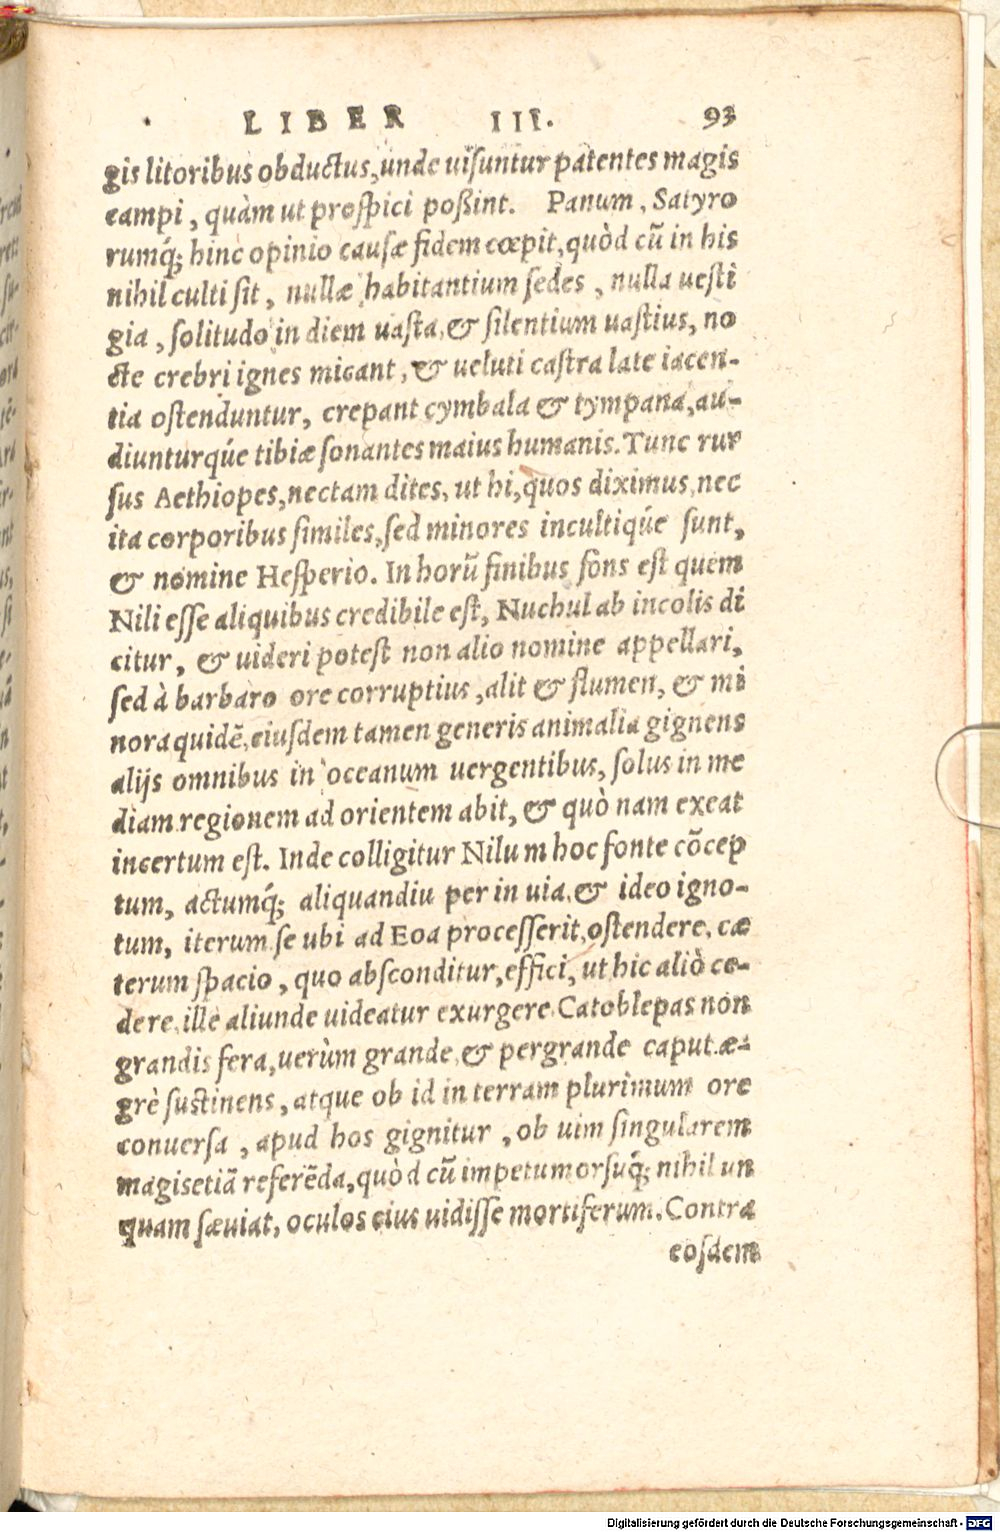 LIBER III. 93
gis litoribus obductus, unde uisuntur patentes magis
campi, quàm ut prospici poßint. Panum, Satyro
rumq́; hinc opinio causæ fidem cœpit, quòd cũ in his
nihil culti sit, nullæ habitantium sedes, nulla uesti
gia, solitudo in diem uasta, & silentium uastius, no
cte crebri ignes micant, & ueluti castra late iacen-
tia ostenduntur, crepant cymbala & tympana, au-
diunturqúe tibiæ sonantes maius humanis. Tunc rur
sus Aethiopes, nec tam dites, ut hi, quos diximus, nec
ita corporibus similes, sed minores incultiqúe sunt,
& nomine Hesperio. In horũ finibus fons est quem
Nili esse aliquibus credibile est, Nuchul ab incolis di
citur, & uideri potest non alio nomine appellari,
sed à barbaro ore corruptius, alit & flumen, & mi
nora quidẽ, eiusdem tamen generis animalia gignens
alijs omnibus in oceanum uergentibus, solus in me
diam regionem ad orientem abit, & quò nam exeat
incertum est. Inde colligitur Nilum hoc fonte cõcep
tum, actumq́; aliquandiu per inuia, & ideo igno-
tum, iterum se ubi ad Eoa processerit, ostendere, cæ
terum spacio, quo absconditur, effici, ut hic aliò ce-
dere, ille aliunde uideatur exurgere. Catoblepas non
grandis fera, uerùm grande, & pergrande caput æ-
grè sustinens, atque ob id in terram plurimum ore
conuersa, apud hos gignitur, ob uim singularem
magis etiã referẽda, quòd cũ impetu morsuq́; nihil un
quam sæuiat, oculos eius uidisse mortiferum. Contra
eosdem
Digitalisierung gefördert durch die Deutsche Forschungsgemeinschaft - DFG